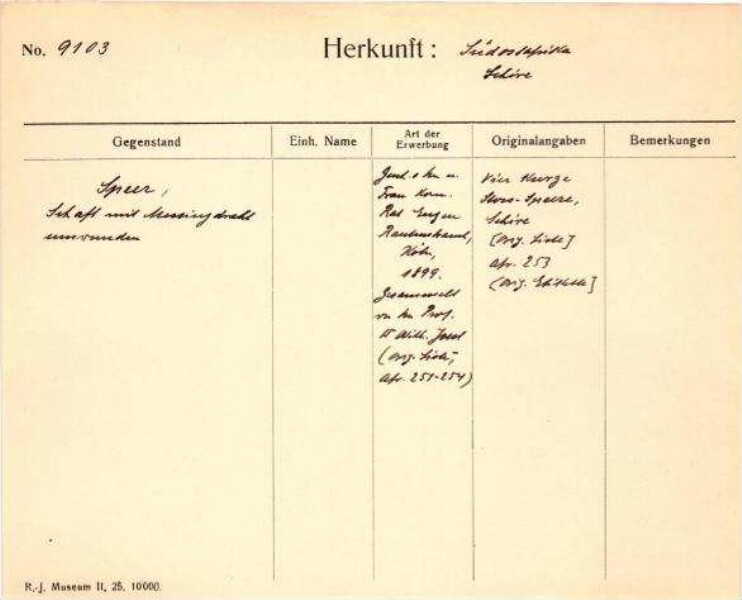 No. 9103
Herkunft: Südostafrika
Schire
Gegenstand
Einh. Name
Art der
Erwerbung
Originalangaben
Bemerkungen
Speer,
Schaft mit Messingdraht
umwunden
Gesch. v. Hn. u.
Frau Kom.
Rat Eugen
Rautenstrauch,
Köln,
1899.
Gesammelt
von Hn Prof.
Dr Wilh. Joest
(Orig. Liste,
Afr. 251-254)
Vier kurze
Stoss-Speere,
Schire
[Orig. Liste]
Afr. 253
[Orig. Etikette]
R.-J. Museum II, 25. 10000.